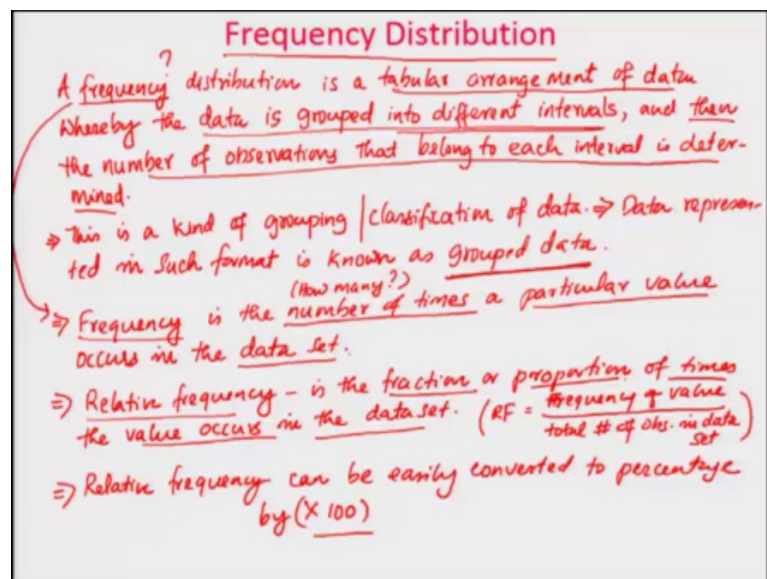 Frequency Distribution
?
A frequency distribution is a tabular arrangement of data
Whereby the data is grouped into different intervals, and then
the number of observations that belong to each interval is deter-
mined.
⇒ This is a kind of grouping | classification of data. ⇒ Data represen-
ted in such format is known as grouped data.
(How many?)
⇒ Frequency is the number of times a particular value
occurs in the data set.
⇒ Relative frequency - is the fraction or proportion of times
the value occurs in the data set. (RF = frequency of value / total # of obs. in data set)
⇒ Relative frequency can be easily converted to percentage
by (X 100)